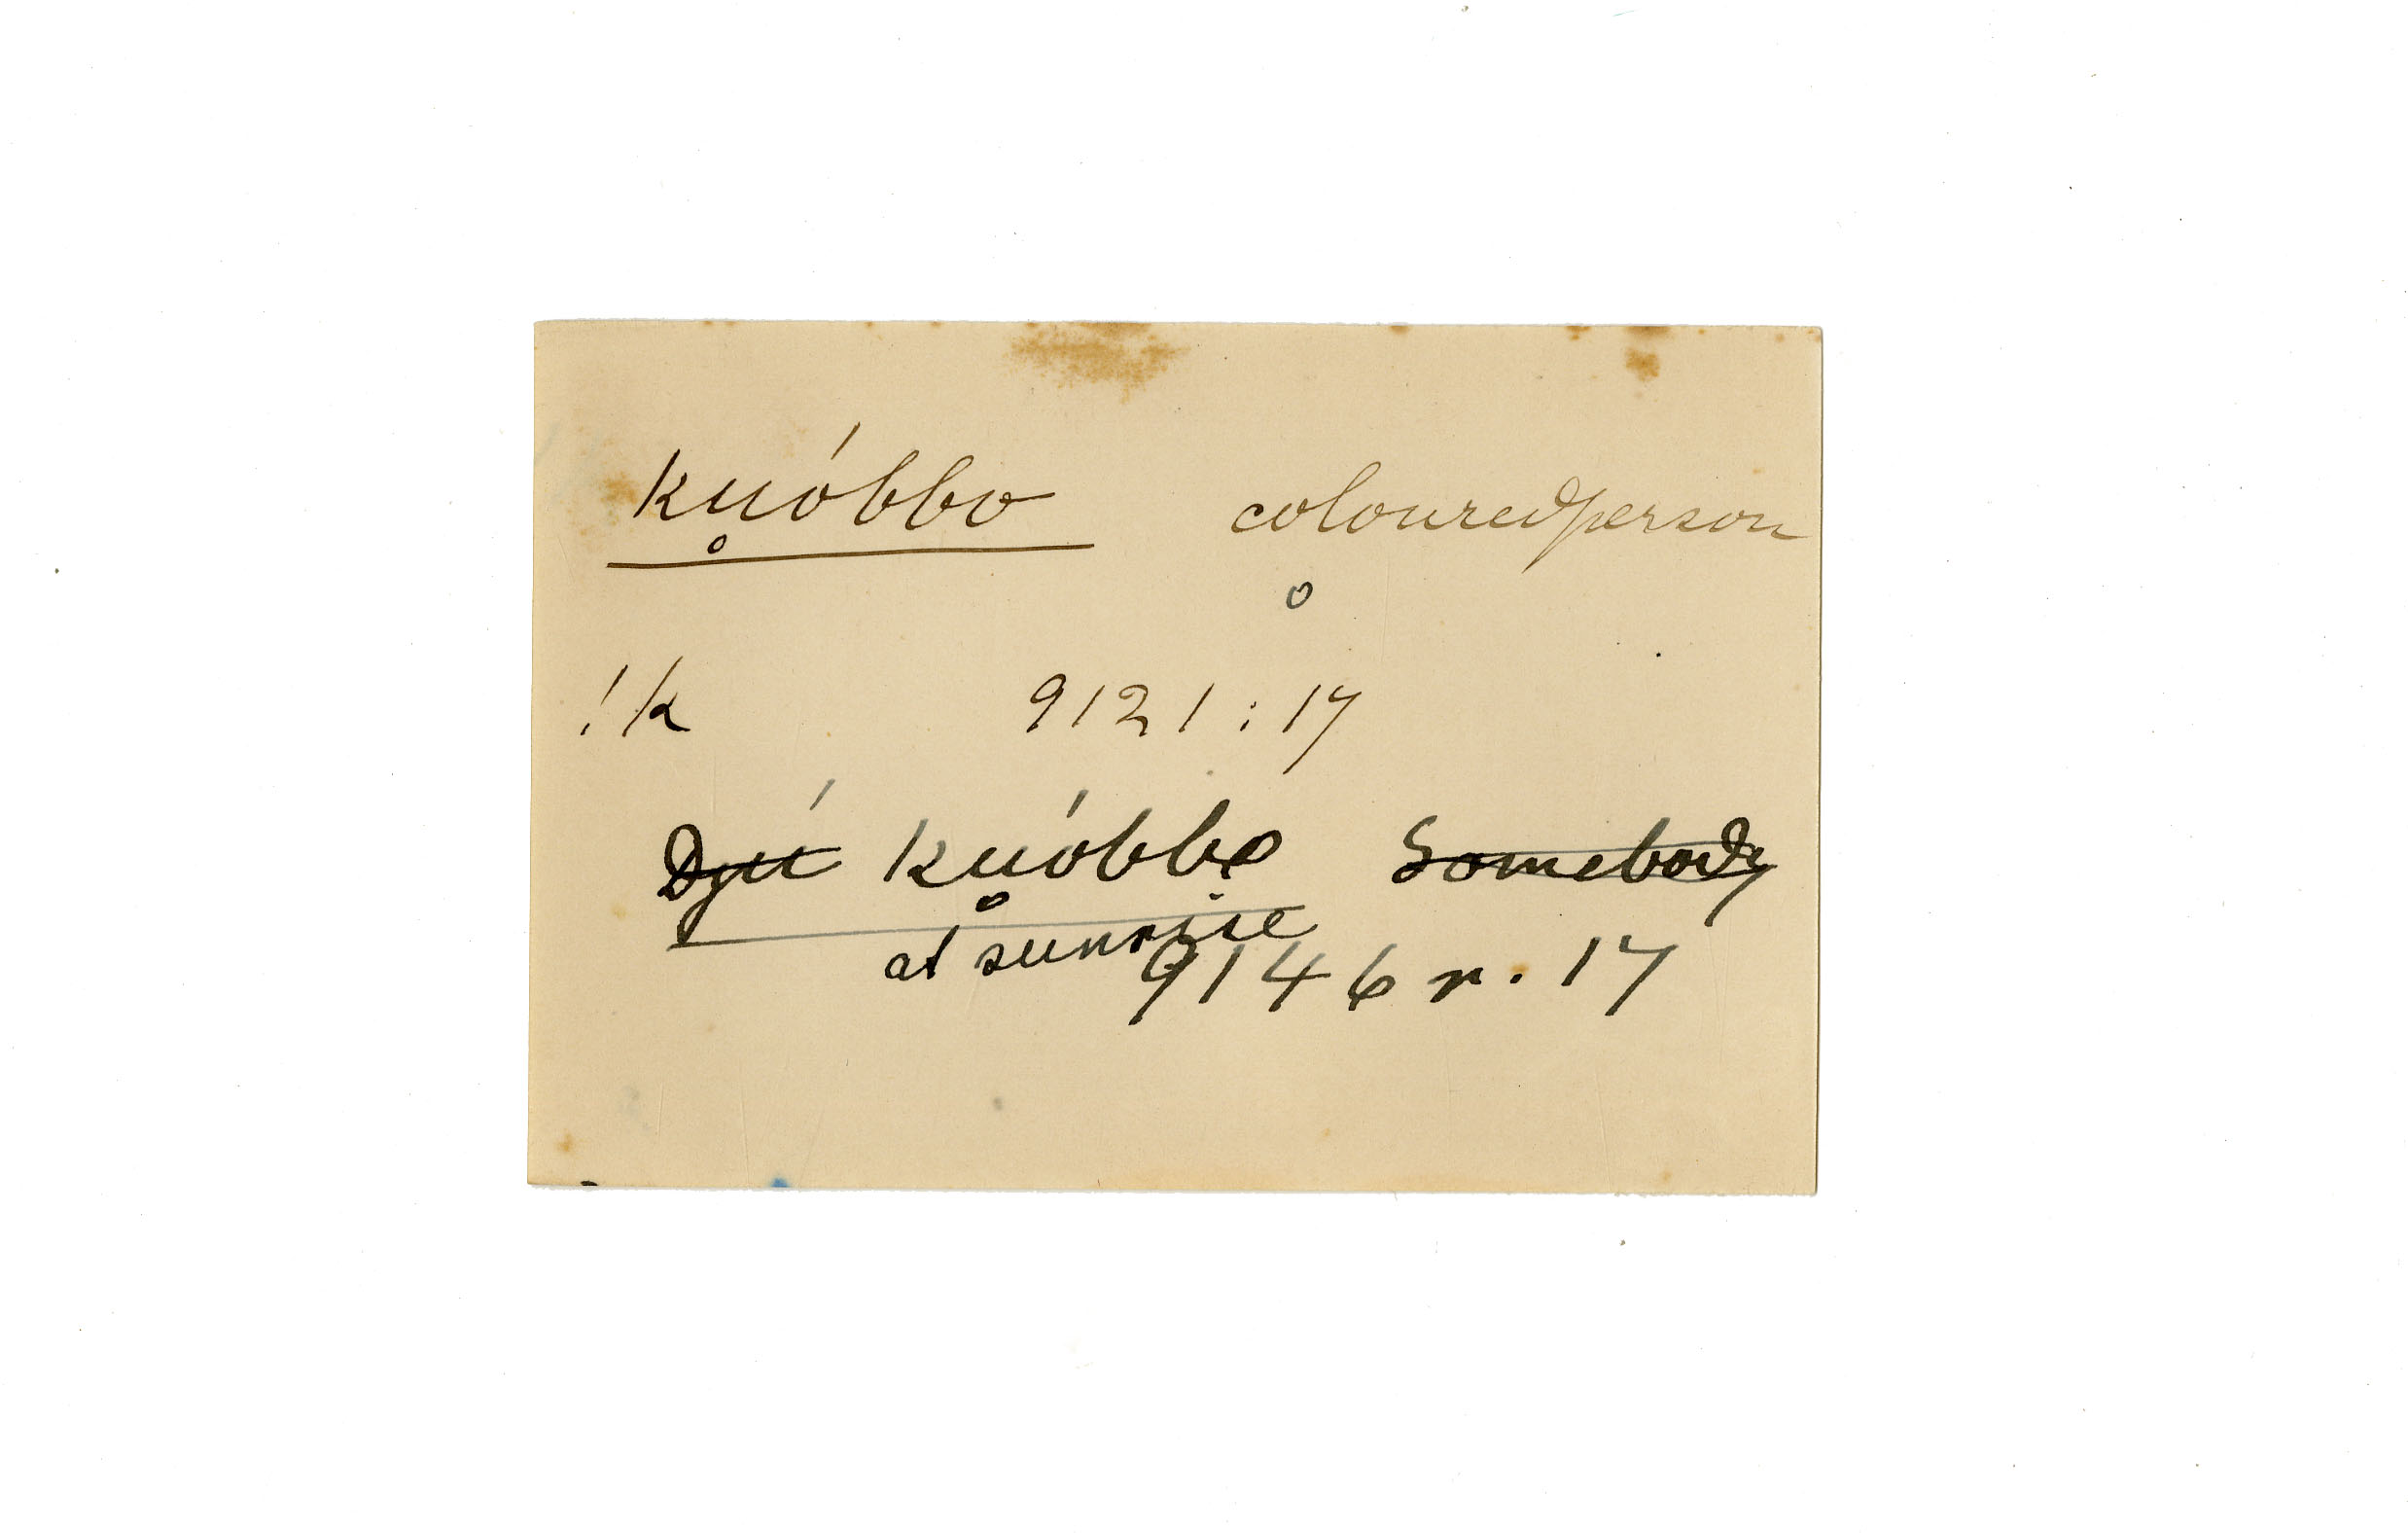 ku̥óbbo coloured person
o
!k 9121:17
Dzú ku̥óbbo Somebody
at sunrise
9146 r. 17